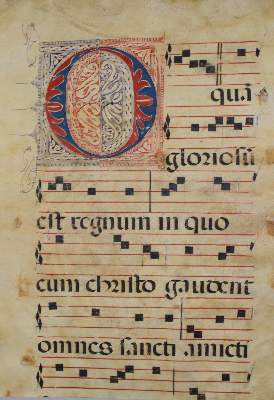 O quā
gloriosū
est regnum in quo
cum christo gaudent
omnes sancti amicti